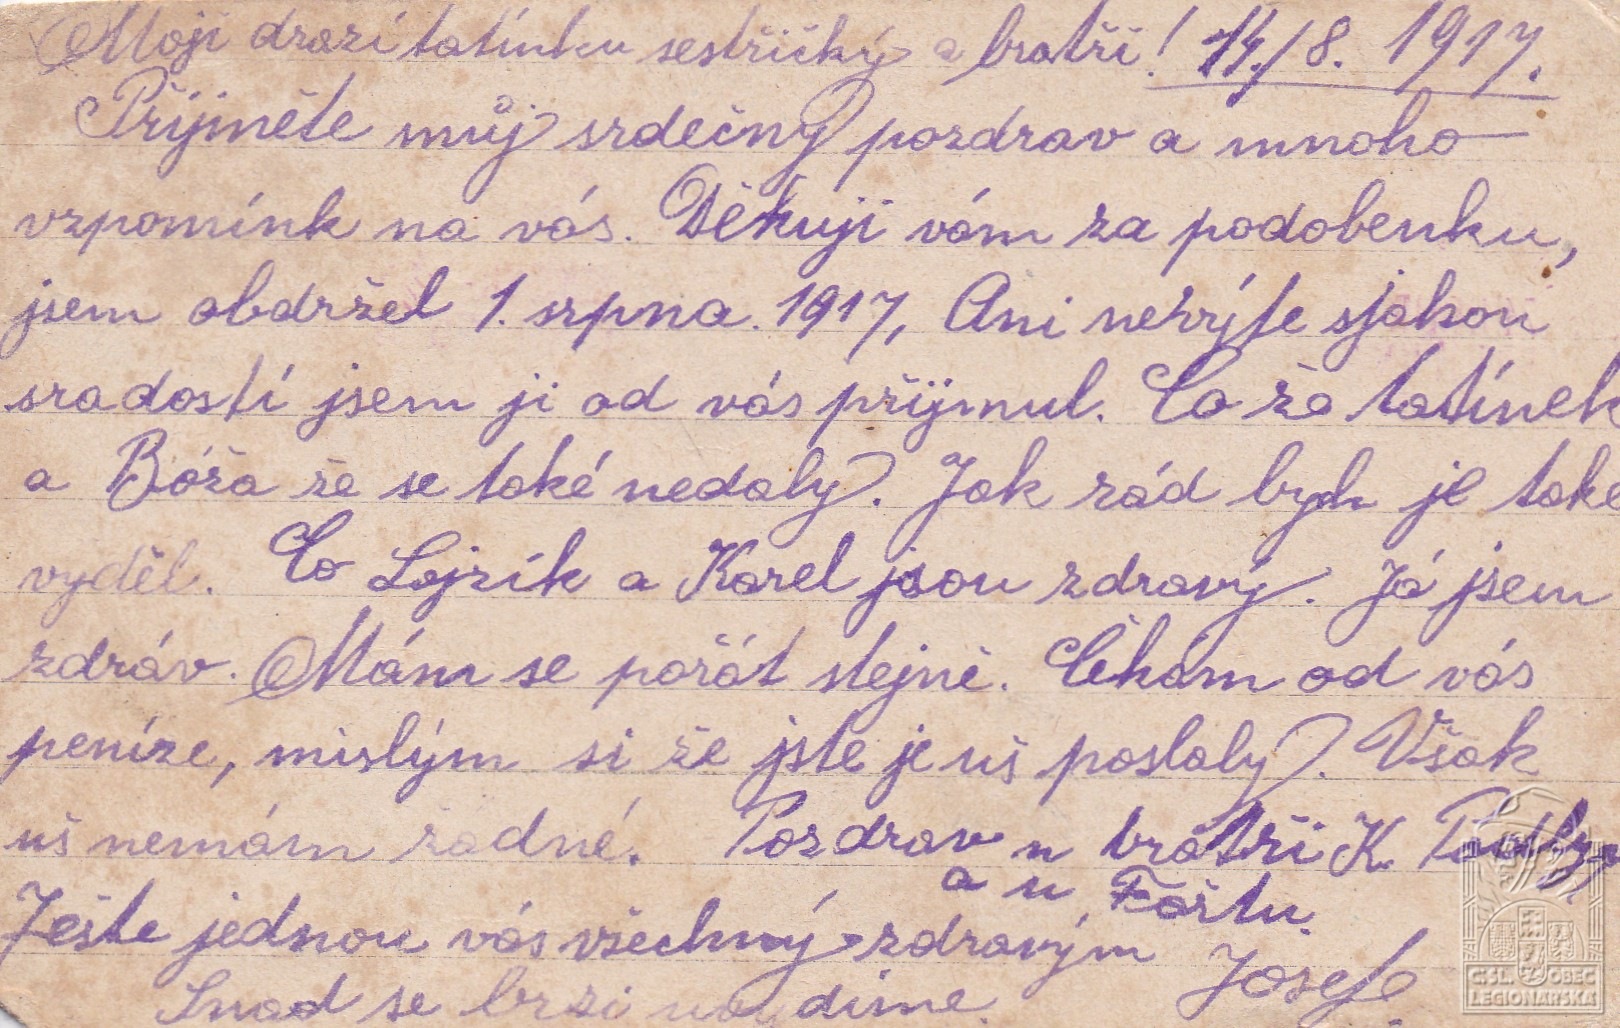 Moji drazí tatínku sestřičký a bratří! 14./8. 1917.
Přijměte můj srdečný pozdrav a mnoho
vzpomínk na vás. Děkuji vám za podobenku,
jsem obdržel 1. srpna. 1917, Ani nevýte sjakou
sradostí jsem ji od vás přijmul. Co že tatínek
a Bóža že se také nedaly. Jak rád bych je také
vyděl. Co Lojzík a Karel jsou zdravý. Já jsem
zdráv. Mám se pořát stejně. Čekám od vás
peníze, mislým si že jste je uš poslaly. Však
uš nemám žádné. Pozdrav u bratři K.
a u Fořtu.
Ješte jednou vás všechný zdravým
Snad se brzi uvydíme. Josef
ČSL. OBEC
LEGIONÁŘSKÁ